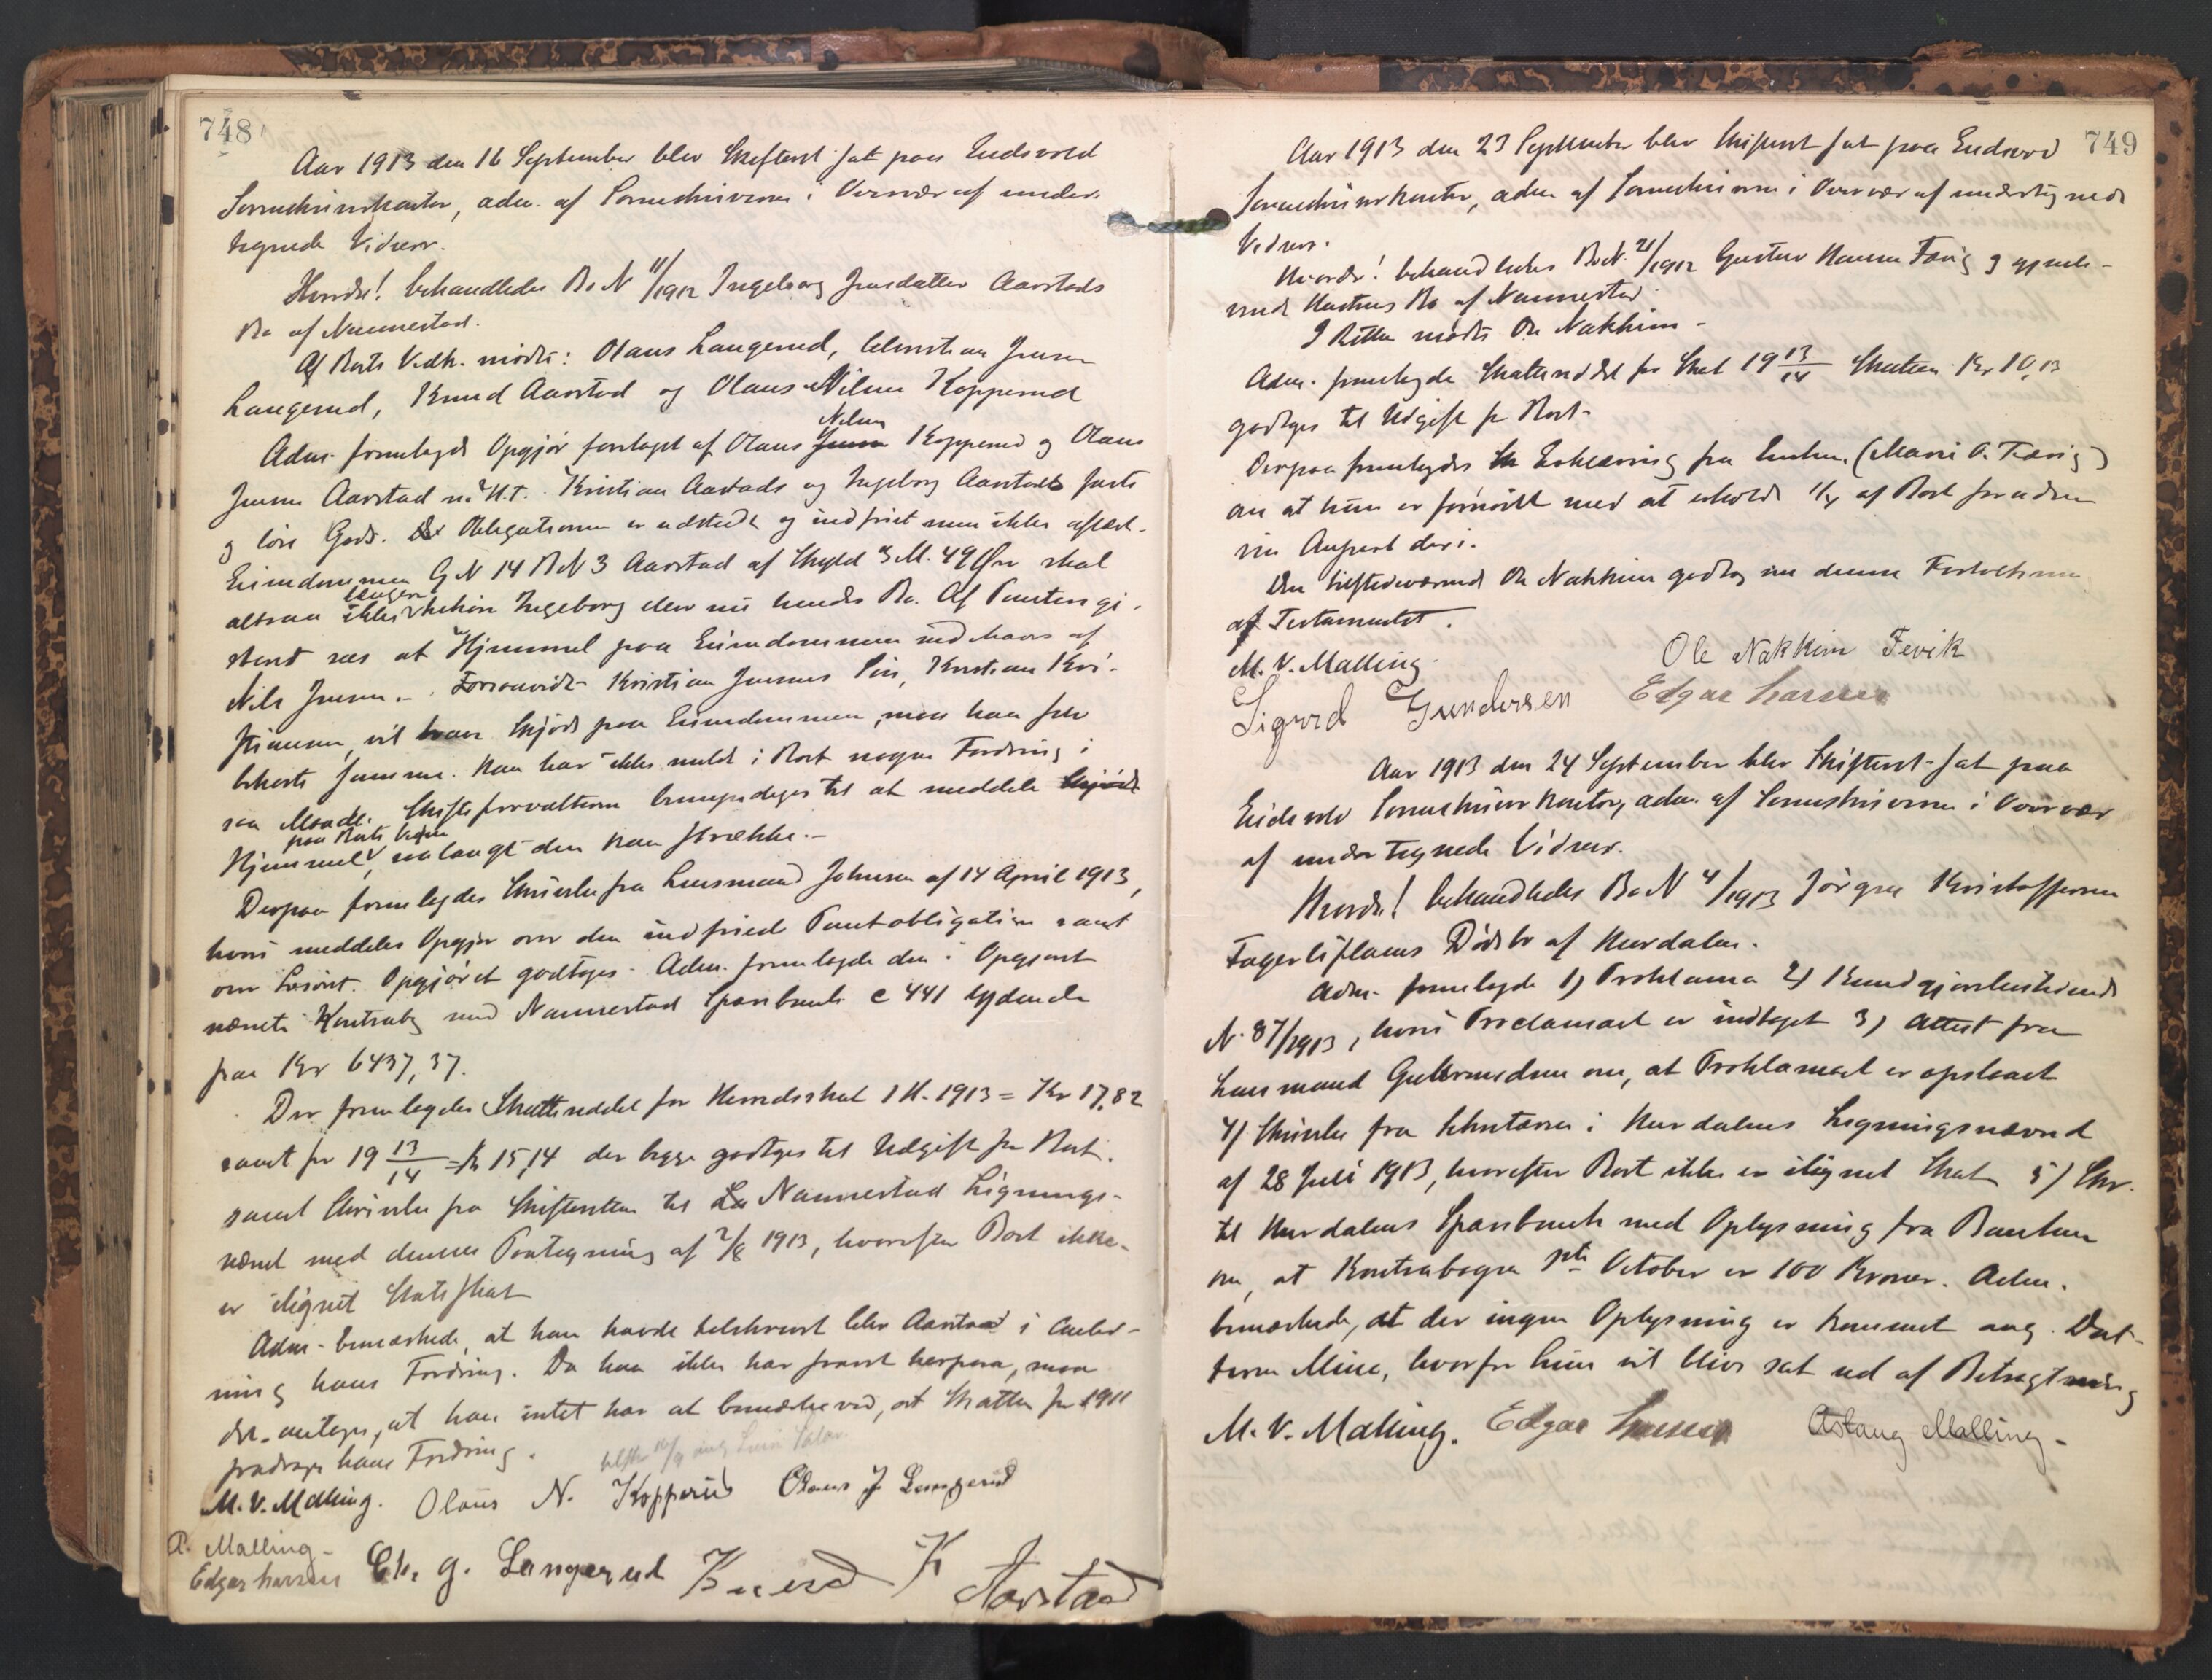 748
Aar 1913 den 16 September blev Skifteret sat paa Eidsvold
Sorenskriverkontor, adm. af Sorenskriveren i Overvær af under-
tegnede Vidner.
Hvorda! behandledes Bo N 11/1912 Ingeborg Jensdatter Aarstads
Bo af Nannestad.
Af Boets Vedk. mødte: Olaus Langerud, Christian Jensen
Langerud, Knud Aarstad og Olaus Nilsen Kopperud
Adm. fremlagde Opgjør foretaget af Olaus Jensen Nilsen Kopperud og Olaus
Jensen Aarstad Kristian Aastads og Ingeborg Aarstads faste
og løse Gods. Obligationen er udstedt og indfriet men ikke aflæst.
Eiendommen G N 14 B N 3 Aarstad af Skyld 3 M. 49 Øre skal
altsaa ikke længer behøve Ingeborg eller nu hendes Bo. Af Panteregi-
steret sees at Hjemmel paa Eiendommen indehaves af
Nils Jensen. Forsaavidt Kristian Jensens Søn, Kristian Kri-
stiansen, vil have Skjøde paa Eiendommen, maa han selv
bekoste samme. Han har ikke meldt i Boet nogen Fordring i
saa Maade. Skifteforvalteren bemyndiges til at meddele Skjøde
Hjemmel, paa Boets Vegne saalangt den kan strække.-
Derpaa fremlagdes Skrivelse fra Lensmand Johnsen af 14 April 1913,
hvori meddeles Opgjør over den indfriede Pantobligation samt
over Løsøret. Opgjøret godtoges. Adm. fremlagde den i Opgjøret
nævnte Kontrabog med Nannestad Sparebank C 441 lydende
paa Kr 6437,37.
Der fremlagdes Skatteseddel for Herredsskat 1 H. 1913 = Kr 17,82
samt for 19 13/14 = Kr 15,14 der begge godtoges til Udgift for Boet.
samt Skrivelse fra Skifteretten til Nannestad Lignings-
nævnd med dennes Paategning af 2/8 1913, hvorefter Boet ikke
er ilignet Statsskat
Adm. bemærkede, at han havde tilskrevet Aarstad i Anled-
ning hans Fordring. Da han ikke har svaret herpaa, maa
det antages, at han intet har at bemærke ved, at Skatten for 1911
fradrages hans Fordring.
M. V. Malling. Olaus N. Kopperud Olaus J Langerud
A. Malling
Edgar Larsen Ch. J. Langerud Knud K Aarstad
749
Aar 1913 den 23 September blev Skifteret sat paa Eidsvold
Sorenskriverkontor, adm af Sorenskriveren i Overvær af undertegnede
Vidner.
Hvorda! behandledes Bo N. 21/1912 Gustav Hansen Fævig og gjenle-
vende Hustrus Bo af Nannestad
I Retten mødte Ole Nakkim -
Adm. fremlagde Skatteseddel for Skat 19 13/14 Skatten Kr 10,13
godtoges til Udgift for Boet.
Derpaa fremlagdes Erklæring fra Enken (Marie O. Fævig)
om at hun er fornøiet med at erholde 1/4 af Boet foruden
sin Aapart deri.
Den tilstedeværende Ole Nakkim godtog nu denne Fortolkning
af Testamentet.
M. V. Malling. Ole Nakkim Fevik
Sigurd Gundersen Edgar Larsen
Aar 1913 den 24 September blev Skifteret sat paa
Eidsvold Sorenskriverkontor, adm. af Sorenskriveren i Overvær
af undertegnede Vidner.
Hvorda! behandledes Bo N 4/1913 Jørgen Kristoffersen
Fagerliflaens Dødsbo af Hurdalen.
Adm. fremlagde 1) Proklama 2) Kundgjørelsestidende
N. 87/1913, hvori Proclamaet er indtaget 3) Attest fra
Lensmand Gullermudsen om, at Proklamaet er opslaaet
4) Skrivelse fra Sekretæren i Hurdalens Ligningsnævnd
af 28 Juli 1913, hvorefter Boet ikke er ilignet Skat 5) Skr.
til Hurdalens Sparebank med Oplysning fra Banken
om, at Kontrabogen pr. October er 100 Kroner. Adm.
bemærkede, at der ingen Oplysning er kommet ang. Dat-
teren Mina, hvorfor hun vil blive sat ud af Betragtning
M. V. Malling. Edgar Larsen Aslaug Malling.